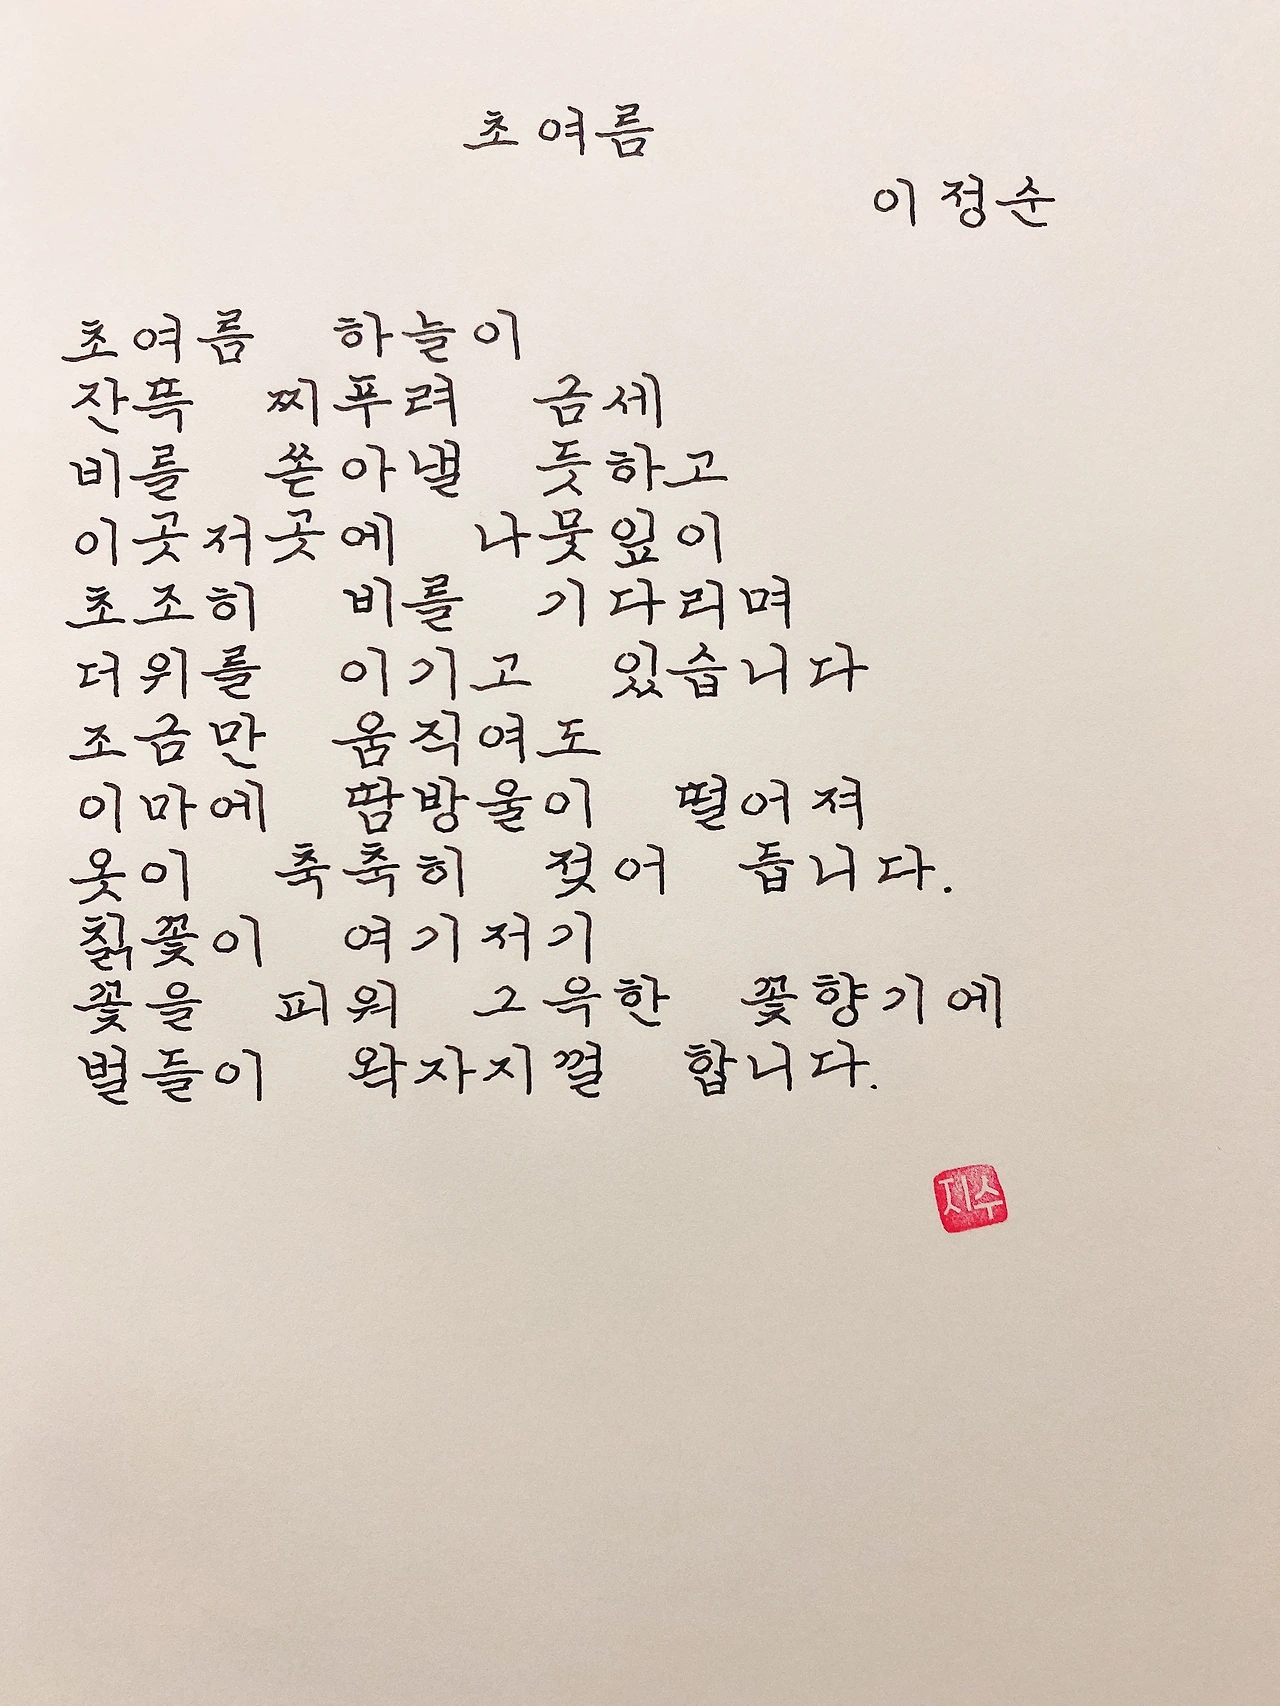 초여름
이정순
초여름 하늘이
잔뜩 찌푸려 금세
비를 쏟아낼 듯하고
이곳저곳에 나뭇잎이
초조히 비를 기다리며
더위를 이기고 있습니다
조금만 움직여도
이마에 땀방울이 떨어져
옷이 축축히 젖어 듭니다.
칡꽃이 여기저기
꽃을 피워 그윽한 꽃향기에
벌들이 왁자지껄 합니다.
지수